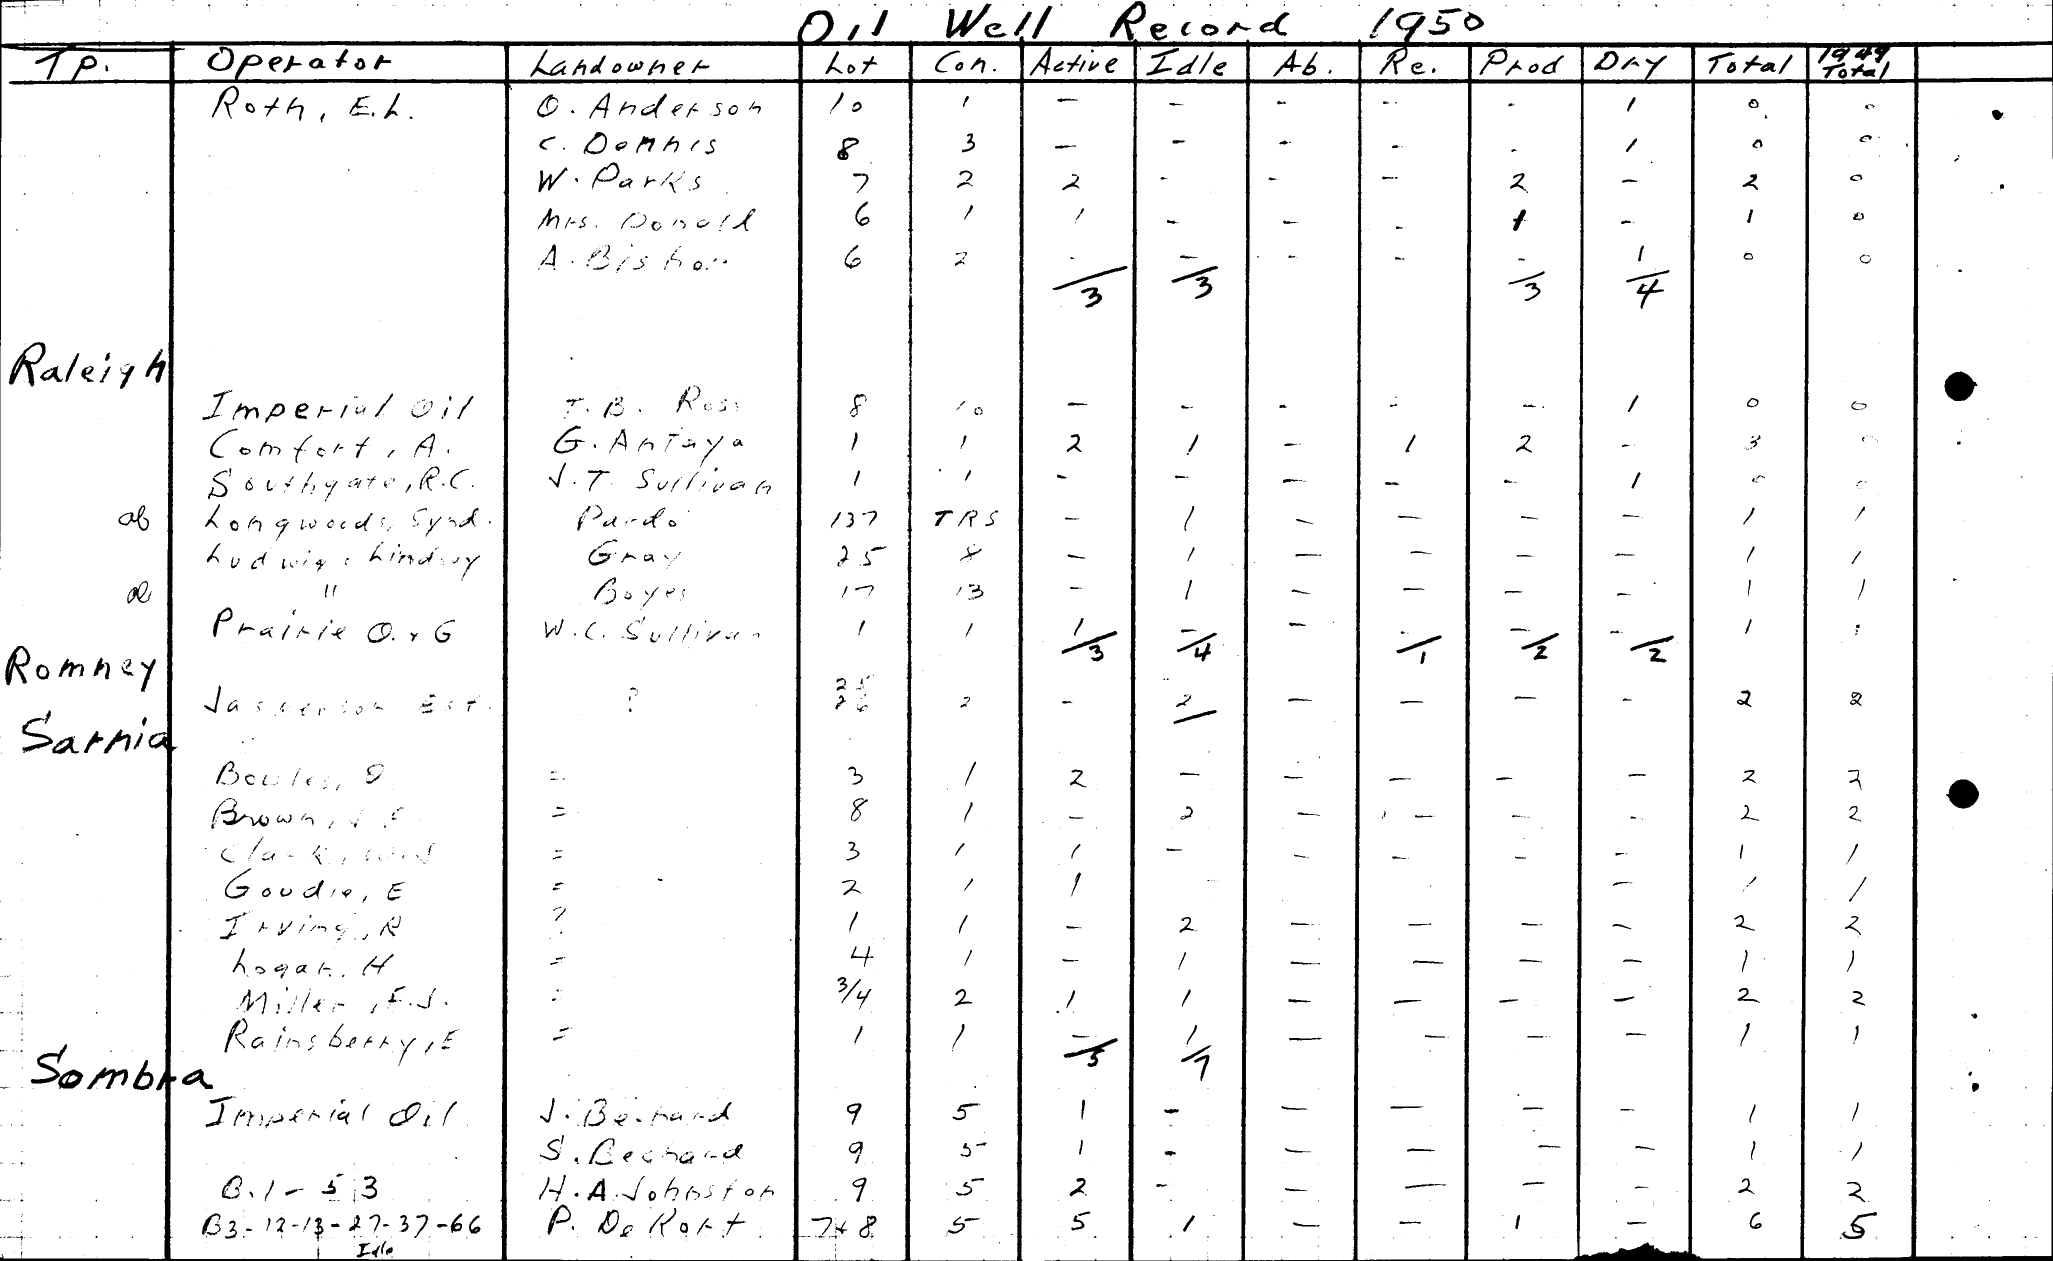 Oil Well Record 1950
Tp. Operator Landowner Lot Con. Active Idle Ab. Re. Prod Dry Total 1949 Total
Roth, E.L. O. Anderson 10 1 - - - - - 1 0 0
C. Dennis 8 3 - - - - - 1 0 0
W. Parks 7 2 2 - - - 2 - 2 0
Mrs. Donald 6 1 1 - - - 1 - 1 0
A. Bishop 6 2 - - - - - 1 0 0
3 3 3 4
Raleigh
Imperial Oil T. B. Ross 8 10 - - - - - 1 0 0
Comfort, A. G. Antaya 1 1 2 1 - 1 2 - 3 0
Southgate, R.C. J.T. Sullivan 1 1 - - - - - 1 0 0
ab Longwoods, Synd. Pardo 137 TRS - 1 - - - - 1 1
Ludwig & Lindsay Gray 25 8 - 1 - - - - 1 1
ab " Boyes 17 13 - 1 - - - - 1 1
Prairie O. & G W.C. Sullivan 1 1 1 - - - - - 1 1
3 4 1 2 2
Romney
Jasperson Est. ? 25 26 2 - 2 - - - - 2 2
Sarnia
Bowles, = 3 1 2 - - - - - 2 2
Brown, = 8 1 - 2 - - - - 2 2
Clark, = 3 1 1 - - - - - 1 1
Goudie, E = 2 1 1 - 1 1
Irving, R ? 1 1 - 2 - - - - 2 2
Logan, H = 4 1 - 1 - - - - 1 1
Miller, E.J. = 3/4 2 1 1 - - - - 2 2
Rainsberry, E = 1 1 - 1 - - - - 1 1
5 7
Sombra
Imperial Oil J. Bechard 9 5 1 - - - - - 1 1
S. Bechard 9 5 1 - - - - - 1 1
B.1 - 53 H.A. Johnston 9 5 2 - - - - - 2 2
B3-12-13-27-37-66 P. DeKort 7+8 5 5 1 - - 1 - 6 5
Idle